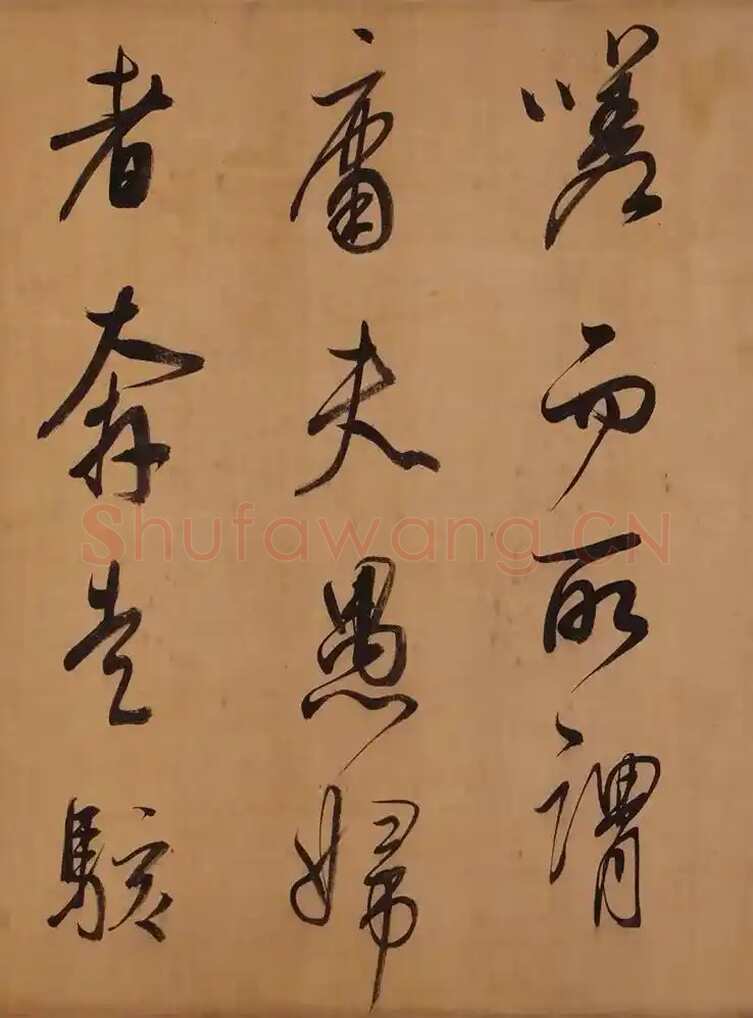 嗟而所謂
庸夫愚婦
者奔走駭
Shufawang.CN